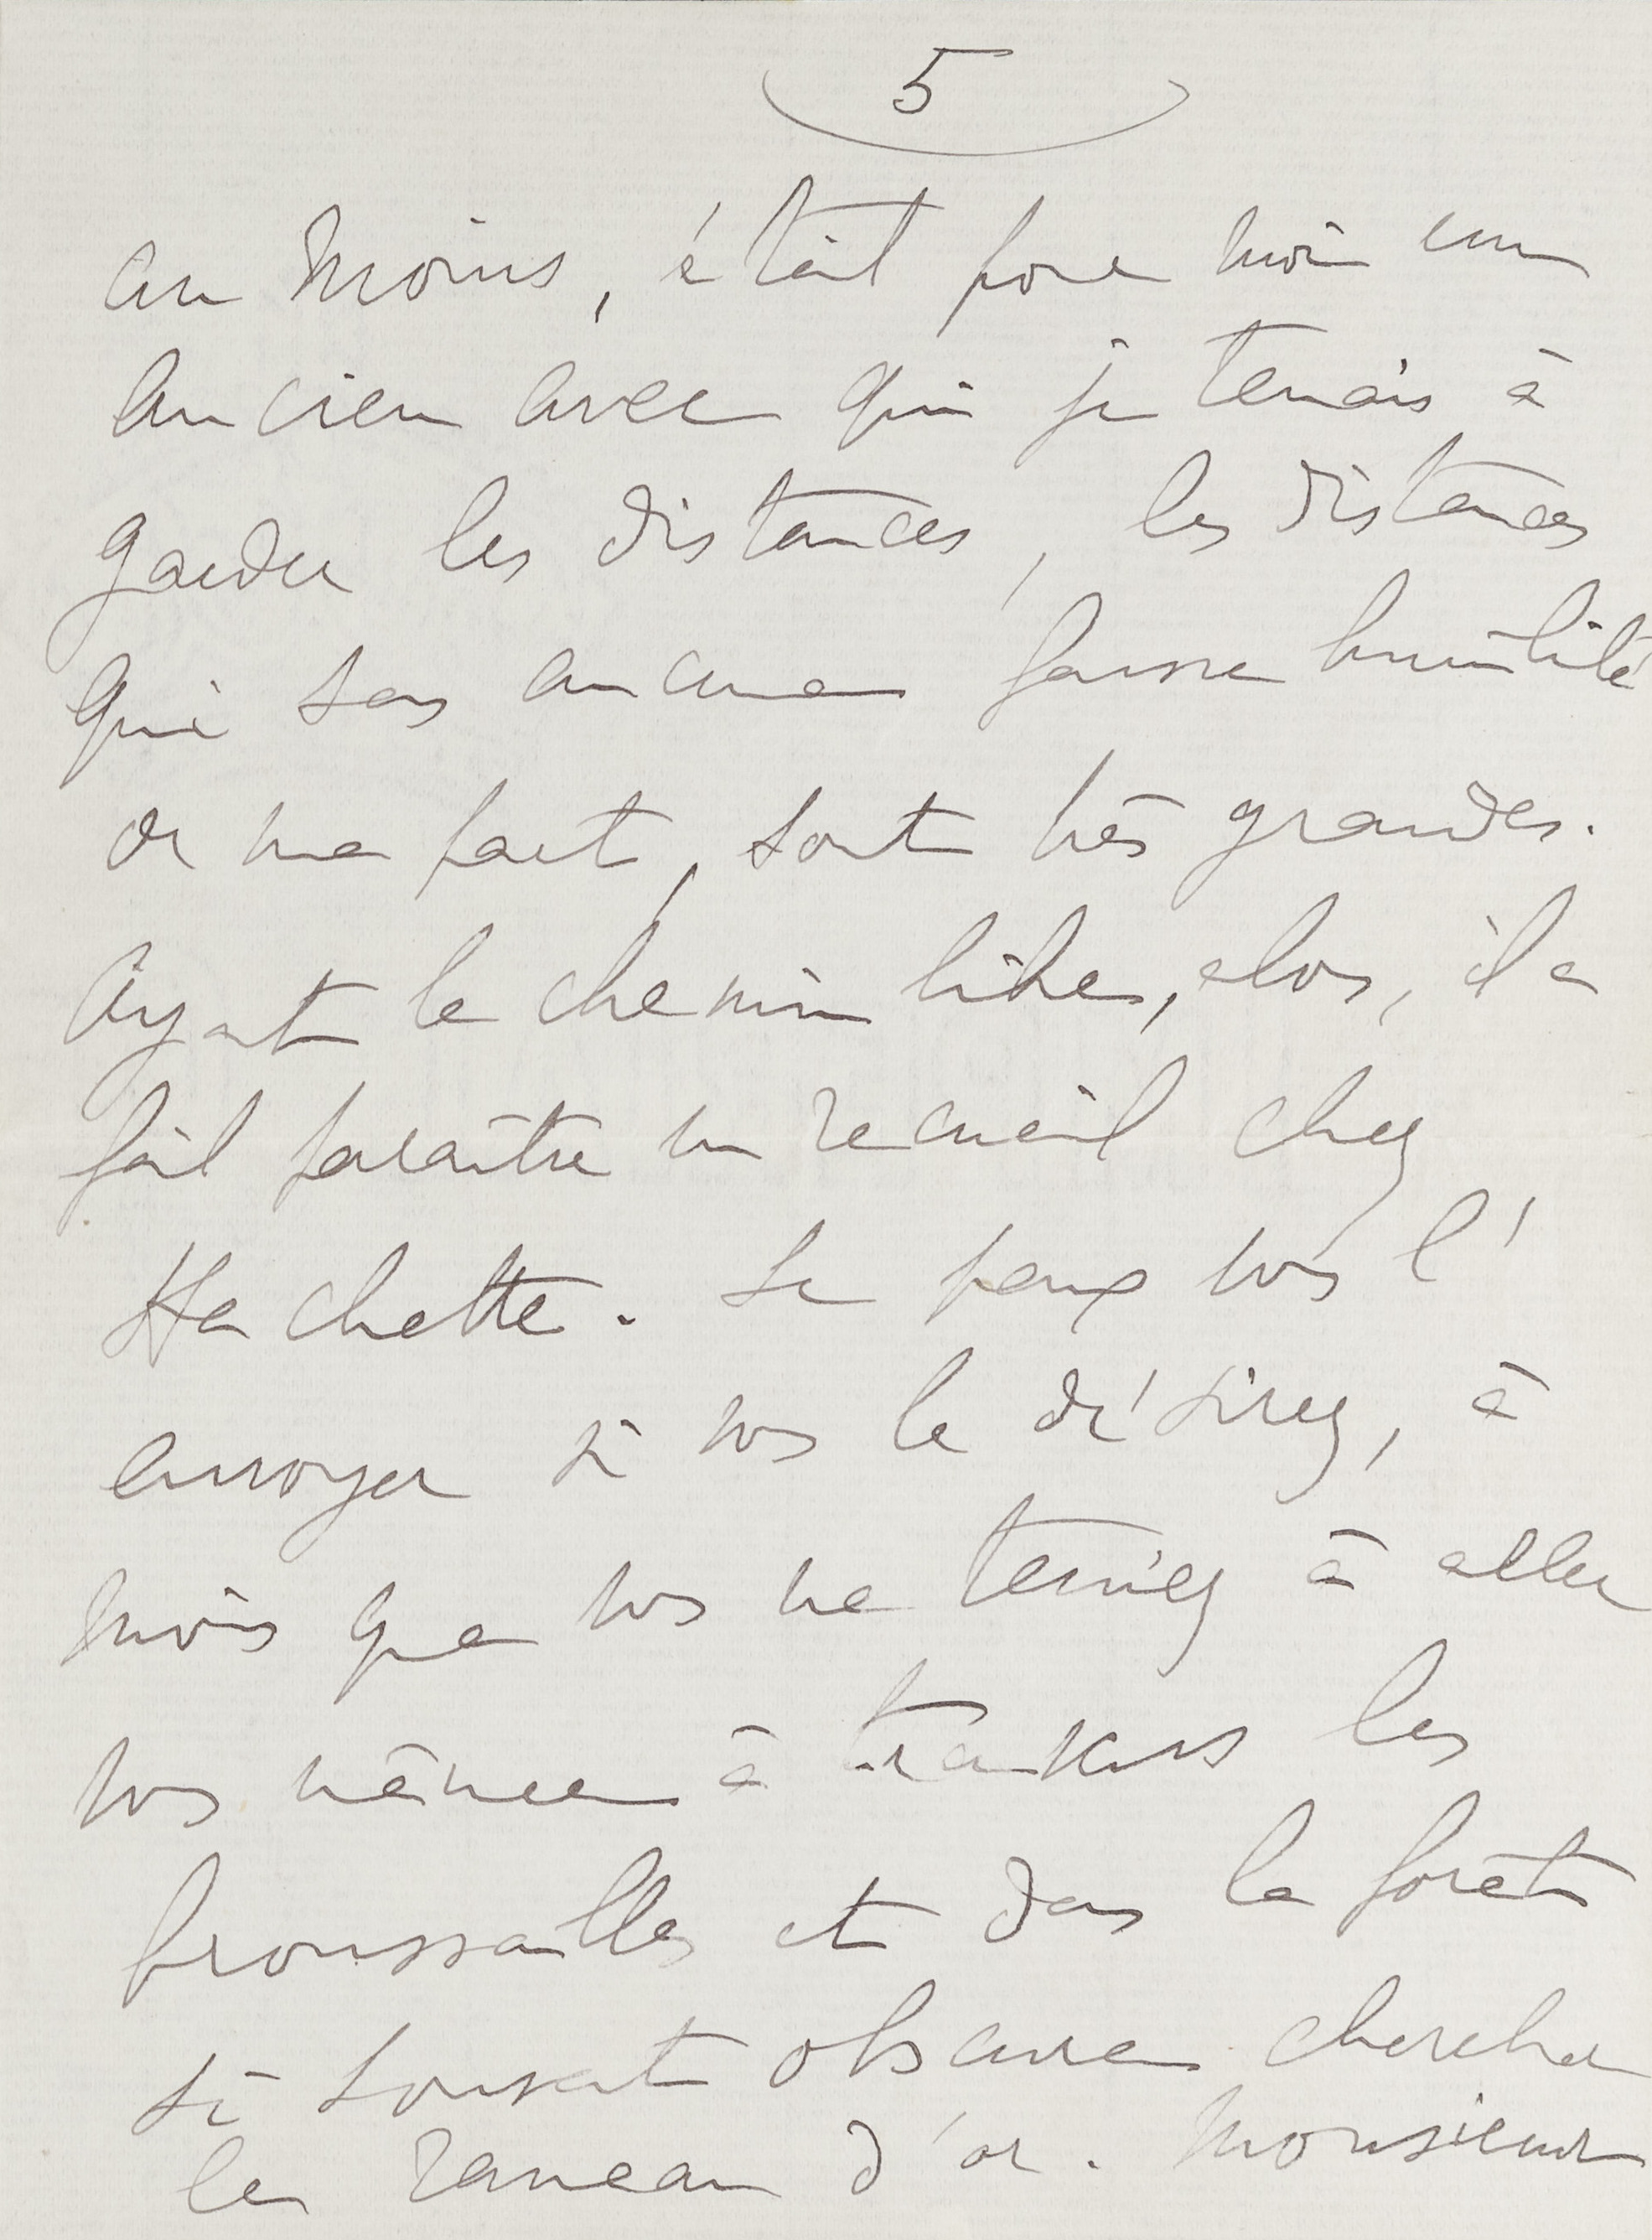 5
au moins, était pour moi un
ancien avec qui je tenais à
garder les distances, les distances
qui sans aucune fausse humilité
de ma part, sont très grandes.
Ayant le chemin libre, alors, il a
fait paraître un recueil chez
Hachette. Je peux vous l'
envoyer si vous le désirez, à
mois que vous ne teniez à aller
vous même à travers les
broussailles et dans la forêt
si souvent obscure chercher
le rameau d'or. Monsieur